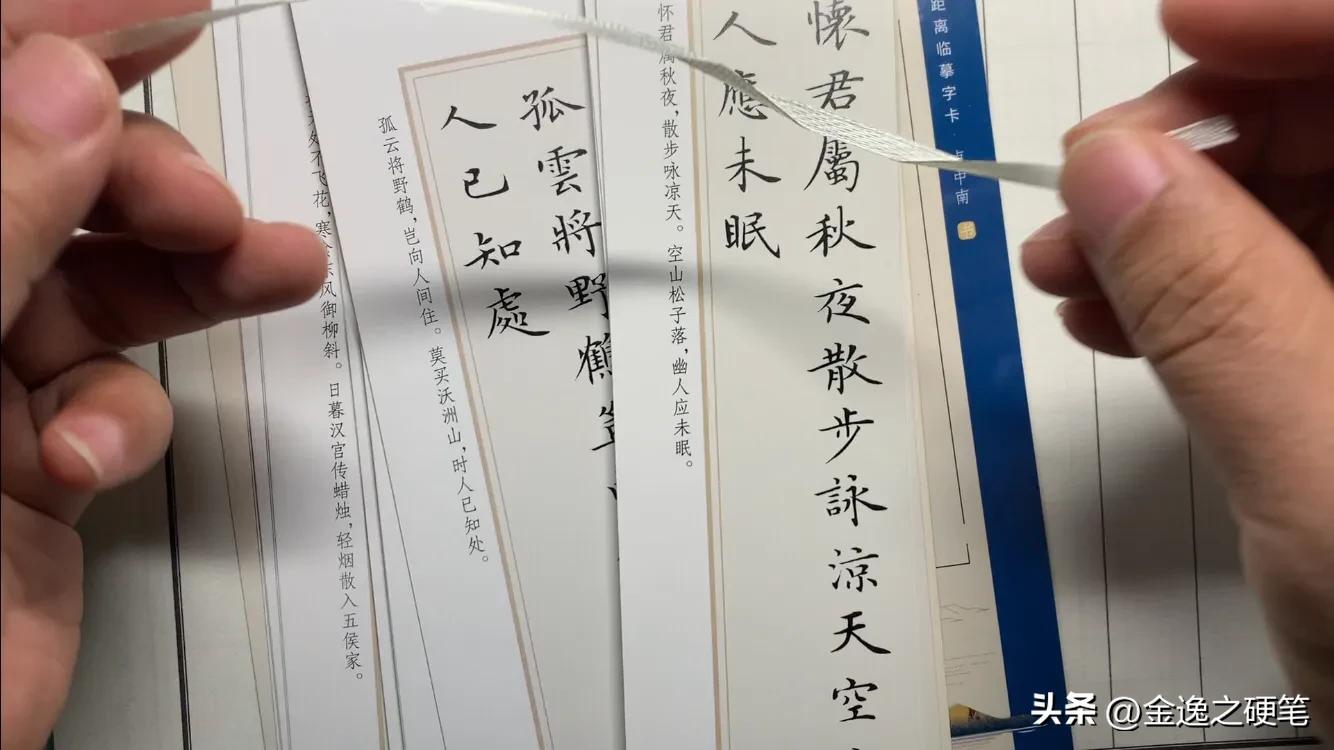 懷君屬秋夜散步詠涼天空
人應未眠
怀君属秋夜，散步咏凉天。空山松子落，幽人应未眠。
孤雲將野鶴豈
人已知處
孤云将野鹤，岂向人间住。莫买沃洲山，时人已知处。
处不飞花，寒食东风御柳斜。日暮汉宫传蜡烛，轻烟散入五侯家。
距离临摹字卡·卢中南
书
头条 @金逸之硬笔